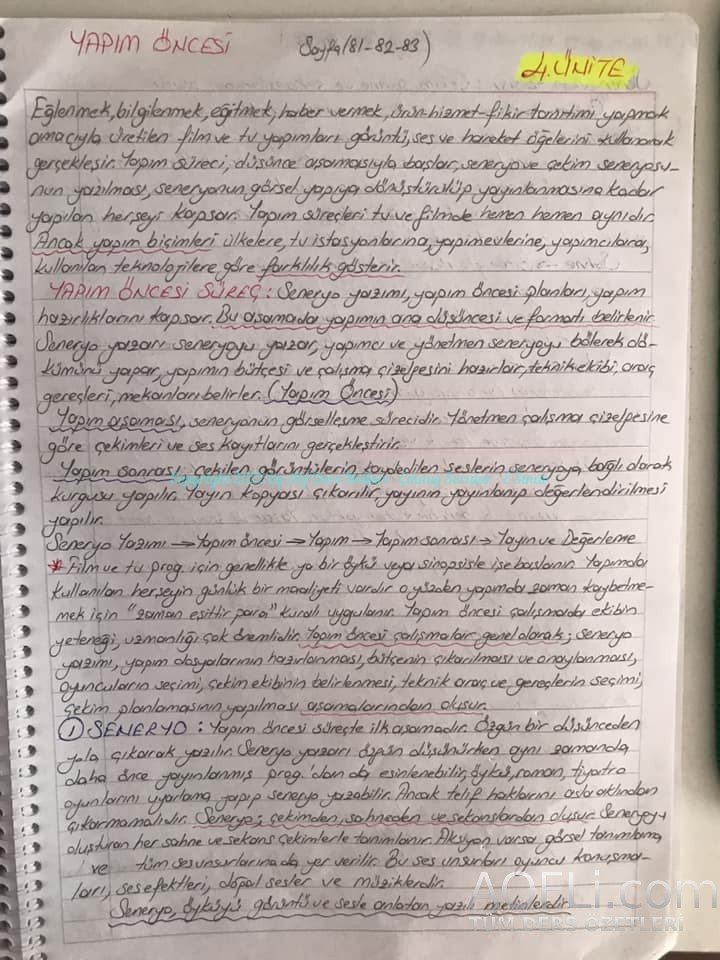 YAPIM ÖNCESİ Sayfa(81-82-83)
4.ÜNİTE
Eğlenmek, bilgilenmek, eğitmek, haber vermek, ürün-hizmet-fikir tanıtımı yapmak
amacıyla üretilen film ve tv yapımları görüntü, ses ve hareket öğelerini kullanarak
gerçekleşir. Yapım süreci, düşünce aşamasıyla başlar, seneryo ve çekim seneryosu-
nun yazılması, seneryonun görsel yapıya dönüştürülüp yayınlanmasına kadar
yapılan herşeyi kapsar. Yapım süreçleri tv ve filmde hemen hemen aynıdır.
Ancak yapım biçimleri ülkelere, tv istasyonlarına, yapımevlerine, yapımcılara,
kullanılan teknolojilere göre farklılık gösterir.
YAPIM ÖNCESİ SÜREÇ: Seneryo yazımı, yapım öncesi planları, yapım
hazırlıklarını kapsar. Bu aşamada yapımın ana düşüncesi ve formatı belirlenir.
Seneryo yazarı seneryoyu yazar, yapımcı ve yönetmen seneryoyu bölerek dö-
kümünü yapar, yapımın bütçesi ve çalışma çizelpesini hazırlar, teknik ekibi, araç
gereçleri, mekanları belirler. (Yapım Öncesi)
Yapım aşaması, seneryonun görselleşme sürecidir. Yönetmen çalışma çizelpesine
göre çekimleri ve ses kayıtlarını gerçekleştirir.
Yapım sonrası; çekilen görüntülerin kaydedilen seslerin seneryoya bağlı olarak
kurgusu yapılır. Yayın kopyası çıkarılır, yayının yayınlanıp değerlendirilmesi
yapılır.
Seneryo Yazımı → Yapım öncesi → Yapım → Yapım sonrası → Yayın ve Değerleme
* Film ve tv prog. için genellikle ya bir öykü veya sinopsisle işe başlanır. Yapımda
kullanılan herşeyin günlük bir maaliyeti vardır o yüzden yapımda zaman kaybetme-
mek için "zaman eşittir para" kuralı uygulanır. Yapım öncesi çalışmada ekibin
yeteneği, uzmanlığı çok önemlidir. Yapım öncesi çalışmalar genel olarak; seneryo
yazımı, yapım dosyalarının hazırlanması, bütçenin çıkarılması ve onaylanması,
oyuncuların seçimi, çekim ekibinin belirlenmesi, teknik araç ve gereçlerin seçimi,
çekim planlamasının yapılması aşamalarından oluşur.
1) SENERYO: Yapım öncesi süreçte ilk aşamadır. Özgün bir düşünceden
yola çıkarak yazılır. Seneryo yazarı özgün düşünürken aynı zamanda
daha önce yayınlanmış prog.'dan da esinlenebilir, öykü, roman, tiyatro
oyunlarını uyarlama yapıp seneryo yazabilir. Ancak telif haklarını asla aklından
çıkarmamalıdır. Seneryo; çekimden, sahneden ve sekanslardan oluşur. Seneryoyu
oluşturan her sahne ve sekans çekimlerle tanımlanır. Aksiyon varsa görsel tanımlama
ve tüm ses unsurlarına da yer verilir. Bu ses unsurları oyuncu konuşma-
ları, ses efektleri, doğal sesler ve müziklerdir.
Seneryo, öyküyü görüntü ve sesle anlatan yazılı metinlerdir.
AOFLi.com
TÜM DERS ÖZETLERİ